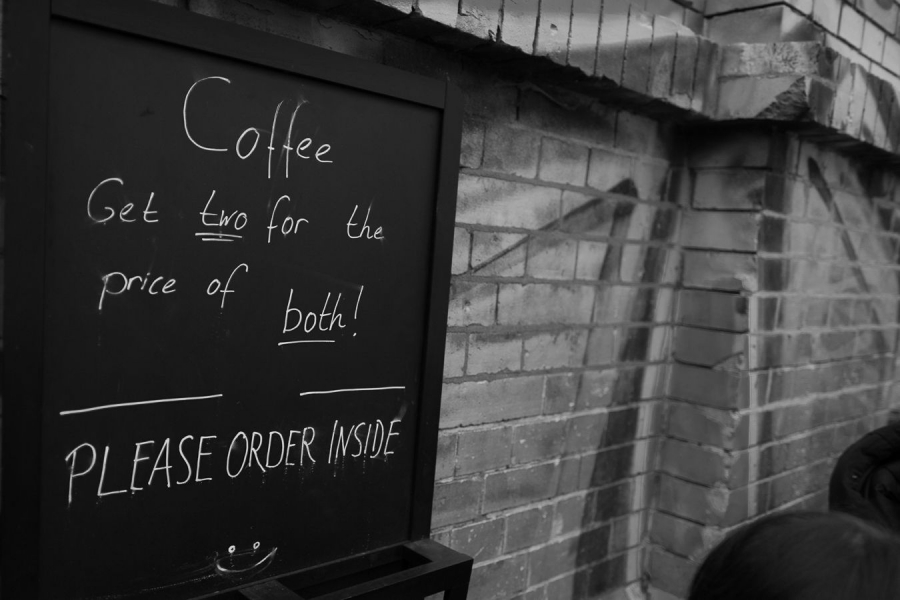 Coffee
Get two for the
price of both!
PLEASE ORDER INSIDE